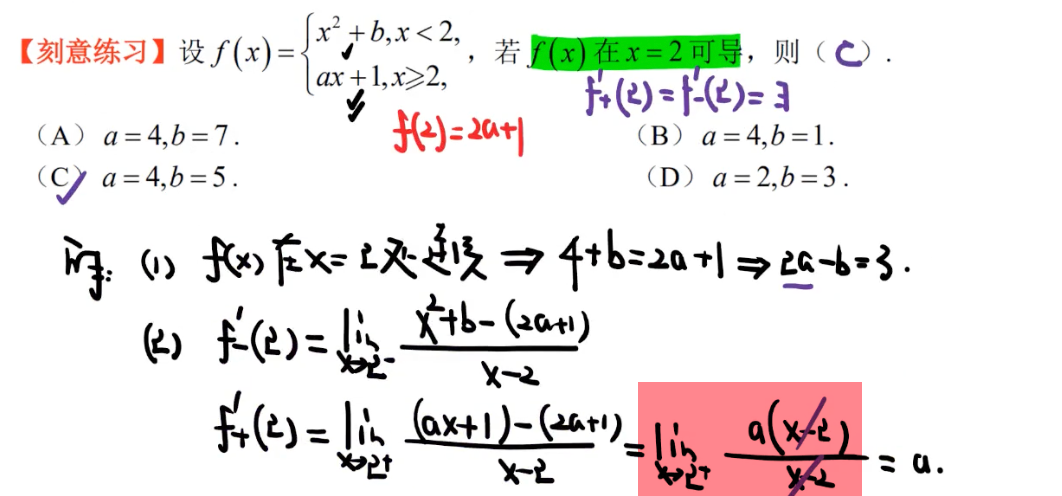 【刻意练习】设 f(x)={x²+b,x<2, ax+1,x≥2, ，若 f(x) 在 x=2 可导，则（ C ）.
f'₊(2)=f'₋(2)=3
f(2)=2a+1
（A） a=4,b=7. （B） a=4,b=1.
（C） a=4,b=5. （D） a=2,b=3.
(1) f(x) 在 x=2处连续 ⇒ 4+b=2a+1 ⇒ 2a-b=3.
(2) f'₋(2)=lim x→2⁻ (x²+b-(2a+1))/(x-2)
f'₊(2)=lim x→2⁺ ((ax+1)-(2a+1))/(x-2) = lim x→2⁺ a(x-2)/(x-2) = a.